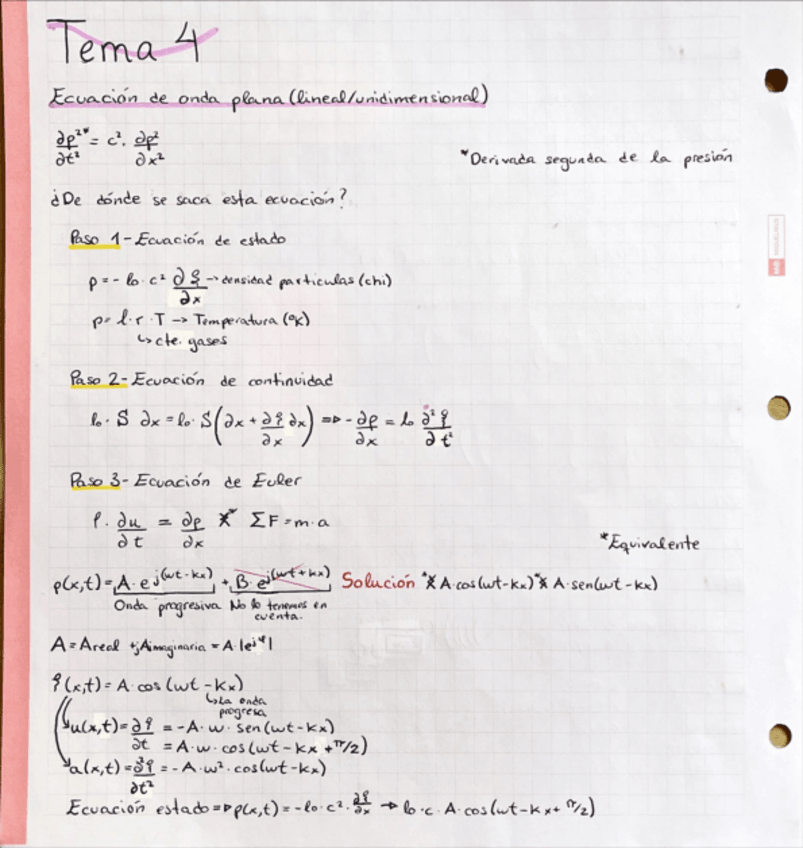 Tema 4
Ecuación de onda plana (lineal/unidimensional)
∂p²*/∂t² = c² · ∂p²/∂x²
*Derivada segunda de la presión
¿De dónde se saca esta ecuación?
Paso 1 - Ecuación de estado
p = - ρ₀ · c² ∂ξ/∂x → densidad partículas (chi)
p = ρ · r · T → Temperatura (ºK)
↳ cte. gases
Paso 2 - Ecuación de continuidad
ρ₀ · S ∂x = ρ₀ · S (∂x + ∂ξ/∂x ∂x) ⇒ - ∂p/∂x = ρ₀ ∂²ξ/∂t²
Paso 3 - Ecuación de Euler
ρ · ∂u/∂t = ∂p/∂x * ΣF = m · a
*Equivalente
p(x,t) = A · e^j(wt - kx) + B · e^j(wt + kx) Solución * A · cos(wt - kx) * A · sen(wt - kx)
Onda progresiva No lo tenemos en cuenta.
A = Areal + jAimaginaria = A · |e^jφ|
ξ(x,t) = A · cos (wt - kx)
↳ La onda progresa
u(x,t) = ∂ξ/∂t = - A · w · sen (wt - kx)
= A · w · cos (wt - kx + π/2)
a(x,t) = ∂²ξ/∂t² = - A · w² · cos (wt - kx)
Ecuación estado ⇒ p(x,t) = - ρ₀ · c² · ∂ξ/∂x → ρ₀ · c · A · cos (wt - kx + π/2)